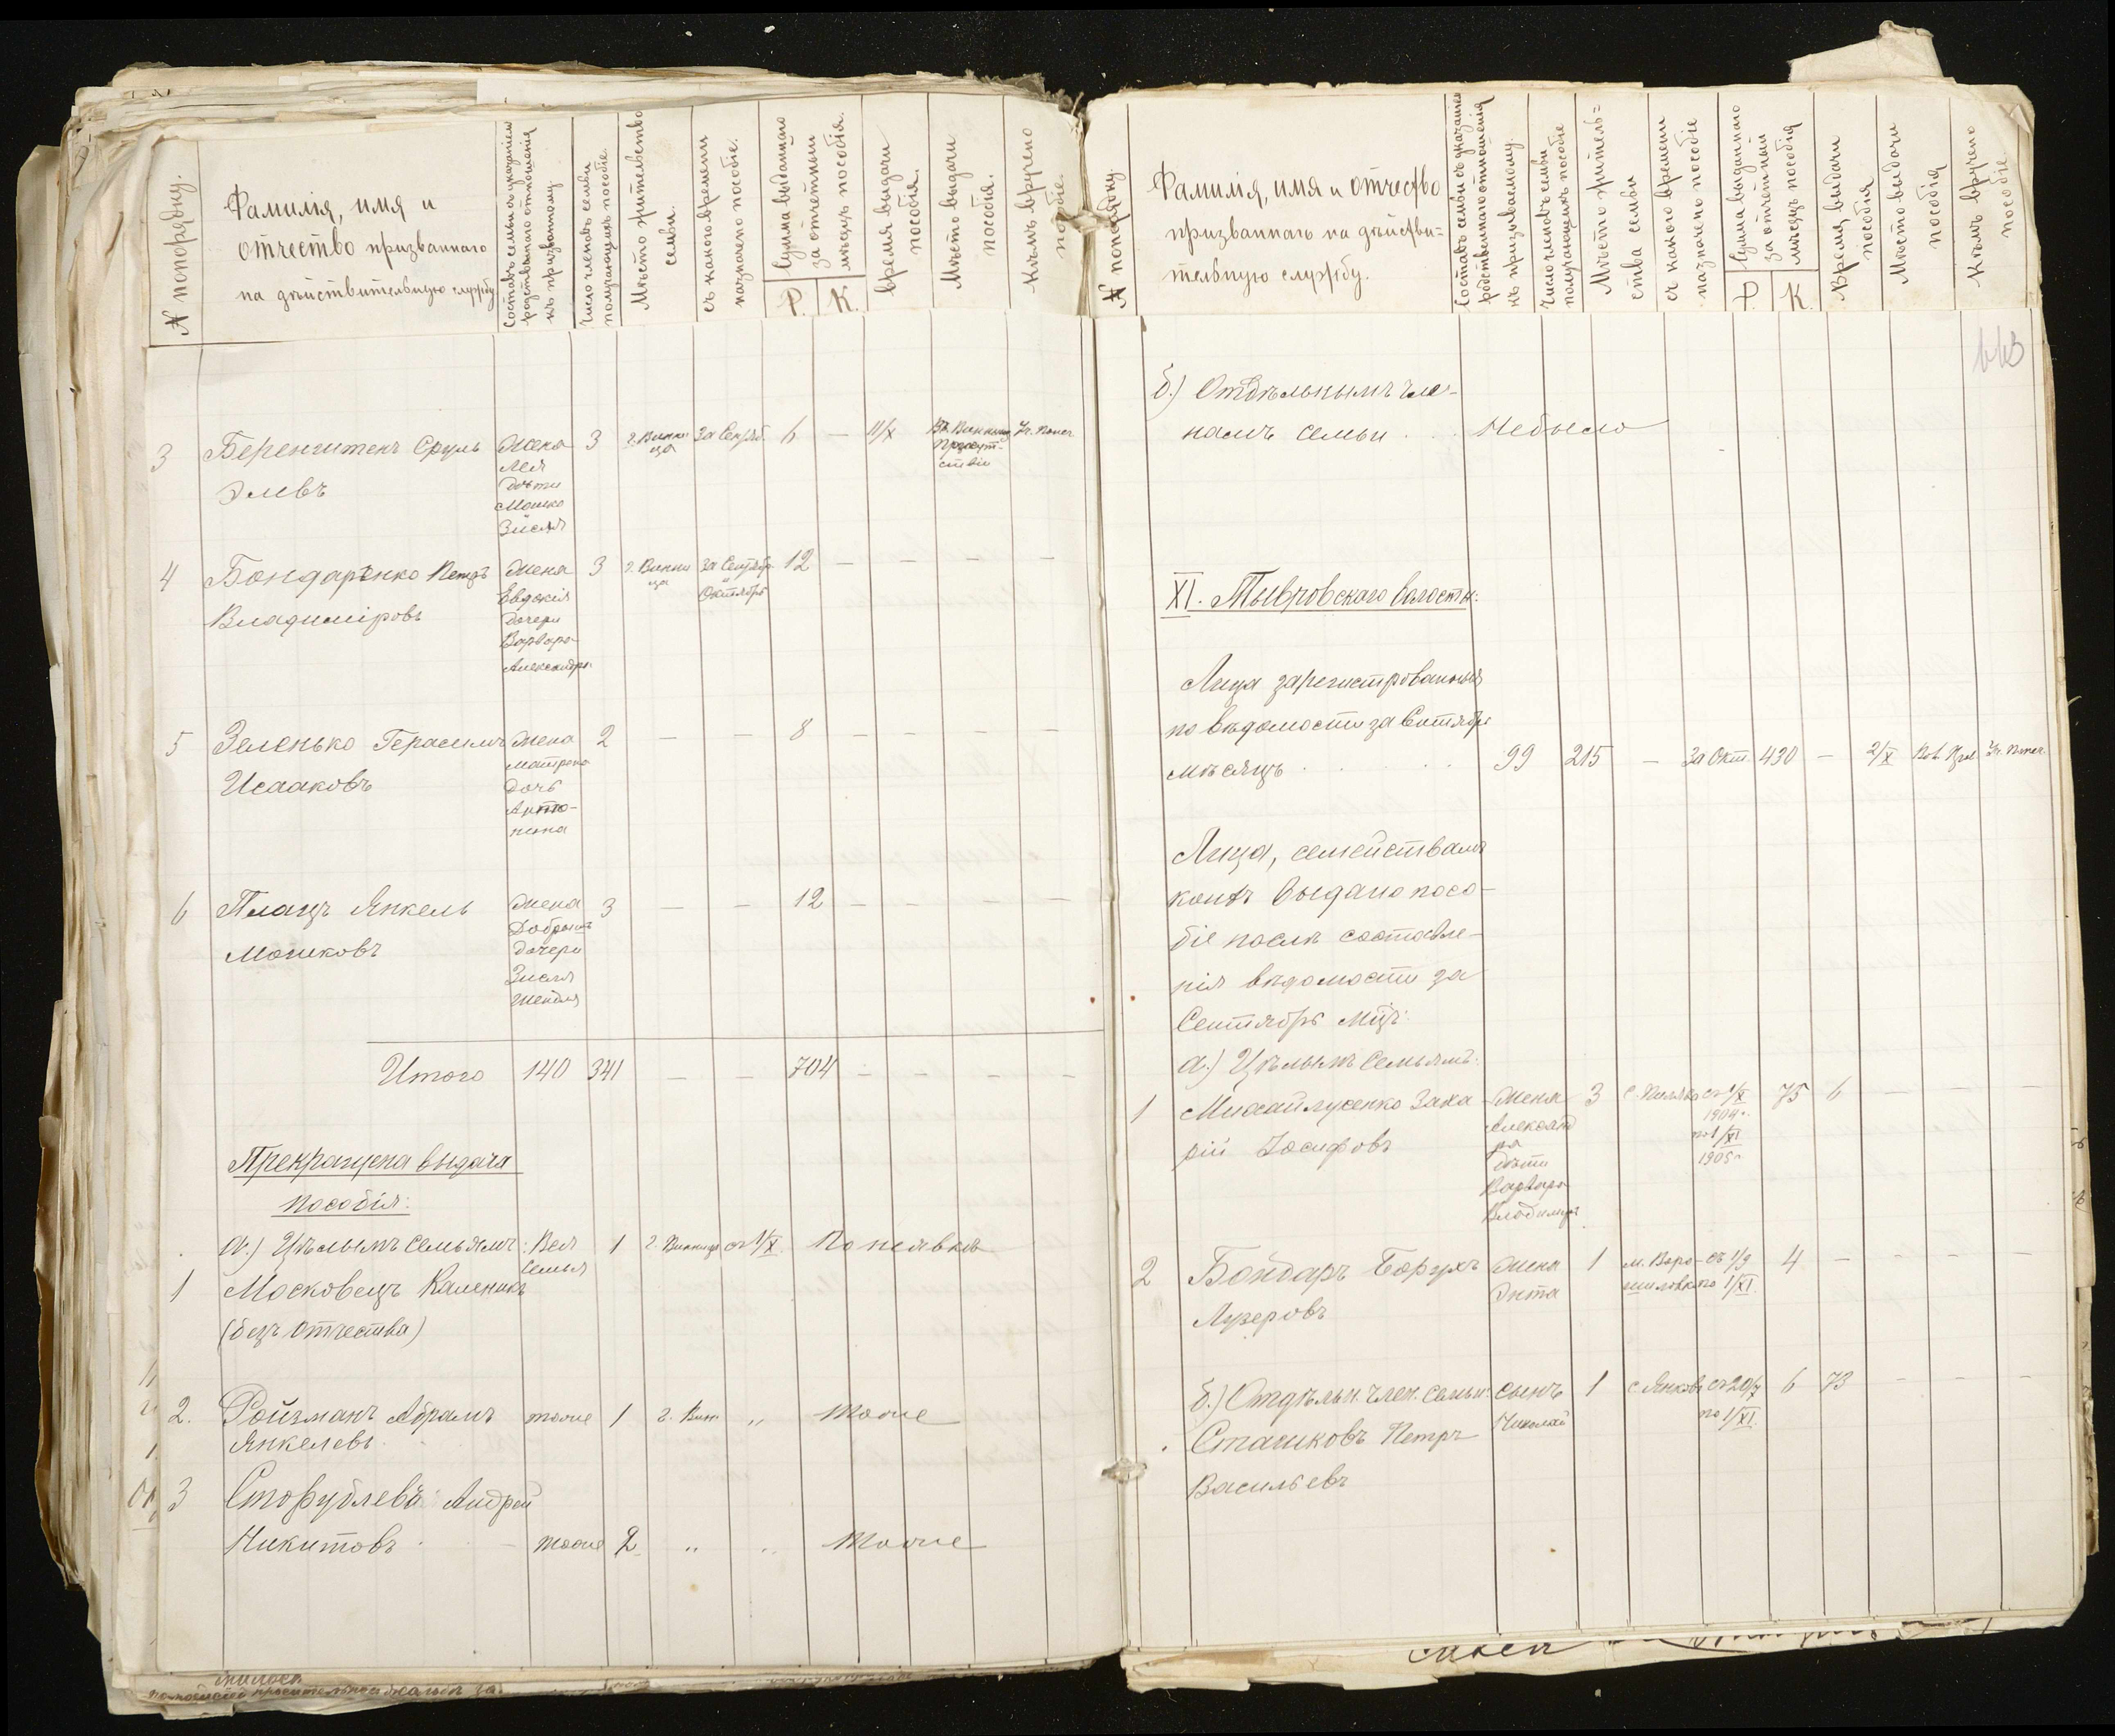 № попорядку.
Фамилія, имя и
отчество призваннаго
на дѣйствительную службу
Составъ семьи съ указаніем
родственнаго отношенія
къ призванному.
Число членовъ семьи
получающихъ пособіе.
Мѣсто жительство
семьи.
съ какого времени
назначено пособіе.
Сумма выданнаго
за отчетный
мѣсяцъ пособія.
Р.
К.
время выдачи
пособія.
Мѣсто выдачи
пособія.
Кѣмъ вручено
пособіе.
3 Беренштенъ Сруль Жена 3 г. Винни за Сентяб. 6 — 11/X Въ Винниц Уч. Попеч
ца Присут-
Лея ствіи
Элевъ Дѣти
Мошко
Зисля
4 Бондаренко Петръ Жена 3 г. Винни за Сентябр 12 — — — —
ца и
Евдокія Октябрь
Владиміровъ Дочери
Варвара
Александра
5 Зеленько Герасимъ Жена 2 — — 8 — — — —
Матрена
Исааковъ Дочь
Анто-
нина
6 Планъ Янкель Жена 3 — — 12 — — — —
Мошковъ Дочери
Зисля
Итого 140 341 — — 704 — — — —
Прекращена выдача
пособія:
а.) Цѣлымъ семьямъ: Вся 1 г. Винница съ 1/X. По неявкѣ
семья
1 Московецъ Каленикъ
(безъ отчества)
2. Ройзманъ Абрамъ тоже 1 г. Вин. „ тоже
Янкелевъ
3 Сторублевъ Андрей
Никитовъ — тоже 2 „ „ тоже
№ попорядку
Фамилія, имя и отчество
призваннаго на дѣйстви=
тельную службу.
Составъ семьи съ указаніем
родственнаго отношенія
къ призываемому.
Число членовъ семьи
получающихъ пособіе
Мѣсто житель=
ства семьи
съ какого времени
назначено пособіе
Сумма выданнаго
за отчетный
мѣсяцъ пособія
Р.
К.
Время выдачи
пособія
Мѣсто выдачи
пособія
Кѣмъ вручено
пособіе.
б.) Отдѣльнымъ чле-
намъ семьи . . Небыло
XI. Тывровскаго волости:
Лица зарегистрованныя
по вѣдомости за Сентябрь
мѣсяцъ . . . . 99 215 — за Окт. 430 — 2/X Вол. Прав. Уч. Попеч.
Лица, семействамъ
коихъ выдано посо-
біе послѣ составле-
нія вѣдомости за
Сентябрь м-цъ:
а.) Цѣлымъ семьямъ:
1 Михайлусенко Заха- Жена 3 съ 1/X 75 6 — — —
1904г.
рій Іосифовъ Александ
ра по 1/XI
Дѣти 1905г
Варвара
Владиміръ
2 Бондаръ Борухъ Жена 1 м. Воро- съ 1/9 4 — — — —
Энта шиловка по 1/XI.
Лузеровъ
б.) Отдѣльн. член. семьи: сынъ 1 6 73 — — —
Николай по 1/XI.
Сташковъ Петръ
Васильевъ